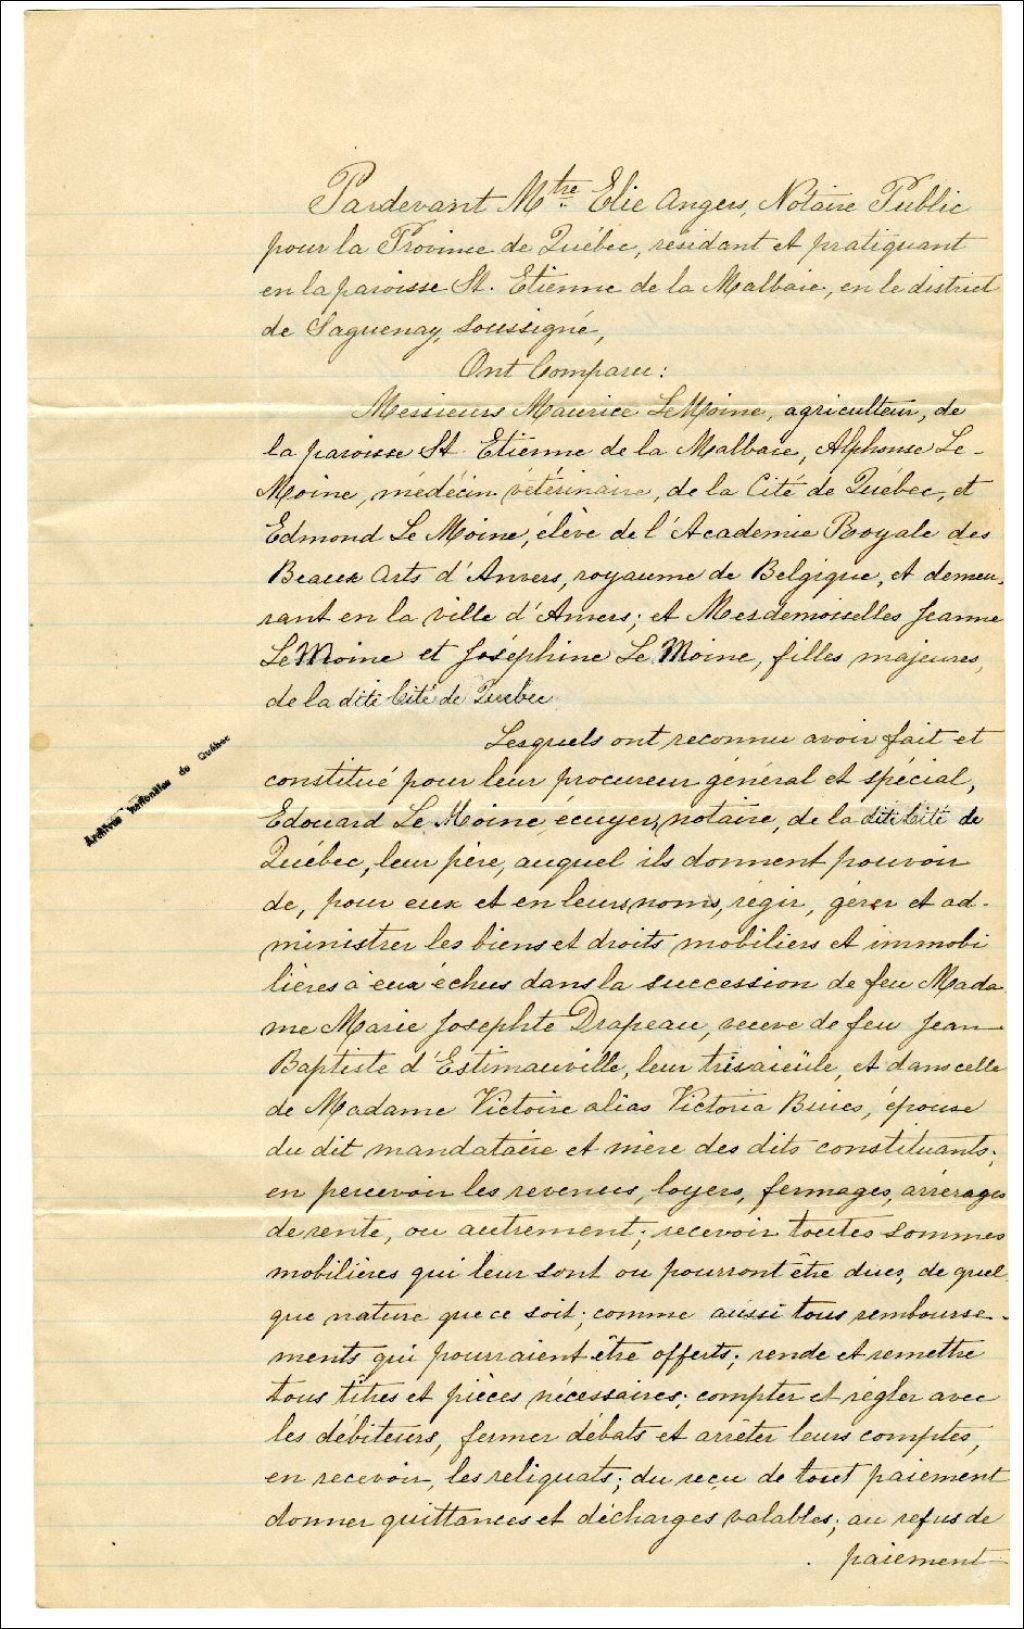 Pardevant Mtre. Elie Angers, Notaire Public
pour la Province de Québec, résidant et pratiquant
en la paroisse St. Etienne de la Malbaie, en le district
de Saguenay, soussigné,
Ont Comparu:
Messieurs Maurice LeMoine, agriculteur, de
la paroisse St Etienne de la Malbaie, Alphonse Le-
Moine, médécin vétérinaire, de la Cité de Québec, et
Edmond Le Moine, élève de l'Academie Royale des
Beaux Arts d'Anvers, royaume de Belgique, et demeu-
rant en la ville d'Anvers; et Mesdemoiselles Jeanne
LeMoine et Joséphine Le Moine, filles majeures,
de la dite Cité de Québec
Lesquels ont reconnu avoir fait et
constitué pour leur procureur général et spécial,
Edouard Le Moine, écuyer, notaire, de la dite Cité de
Québec, leur père, auquel ils donnent pouvoir
de, pour eux et en leurs noms, régir, gérer et ad-
ministrer les biens et droits mobiliers et immobi
lières à eux échus dans la succession de feu Mada
me Marie Josephte Drapeau, veuve de feu Jean
Baptiste d'Estimauville, leur trisaieüle, et dans celle
de Madame Victoire alias Victoria Buies, épouse
du dit mandataire et mère des dits constituants;
en percevoir les revenus, loyers, fermages, arrérages
de rente, ou autrement; recevoir toutes sommes
mobilières qui leur sont ou pourront être dues, de quel
que nature que ce soit; comme aussi tous rembourse-
ments qui pourraient être offerts; rendre et remettre
tous titres et pièces nécessaires; compter et régler avec
les débiteurs, fermer débats et arrêter leurs comptes,
en recevoir, les reliquats; du reçu de tout paiement
donner quittances et décharges valables; au refus de
paiement
Archives nationales du Québec